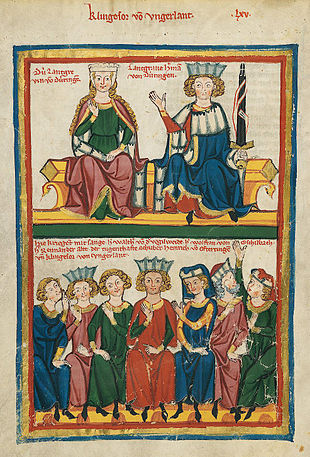 Klingesor vō vngerlant.
Dú Lantgre
vin vō Dúringē
Lantgrave h'mā
von Dúringen.
Hie kriegēt mit sange h' walth' vō d' vogilweide h' wolfran von eschilbach.
h' Reinman der alte der tugenthafte schriber heinrich vō ofterdingē
vn klingesor von vngerlant.